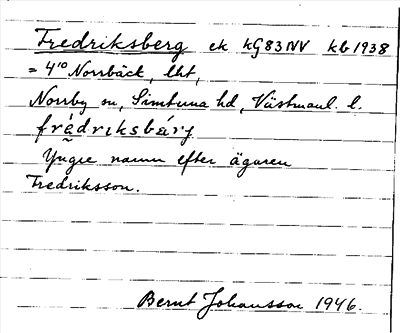 Fredriksberg ek kG83NV kb 1938
= 4¹⁰ Norrbäck, lht,
Norrby sn, Simtuna hd, Västmanl. l.
frédriksbárj
Yngre namn efter ägaren
Fredriksson.
Bernt Johansson 1946.